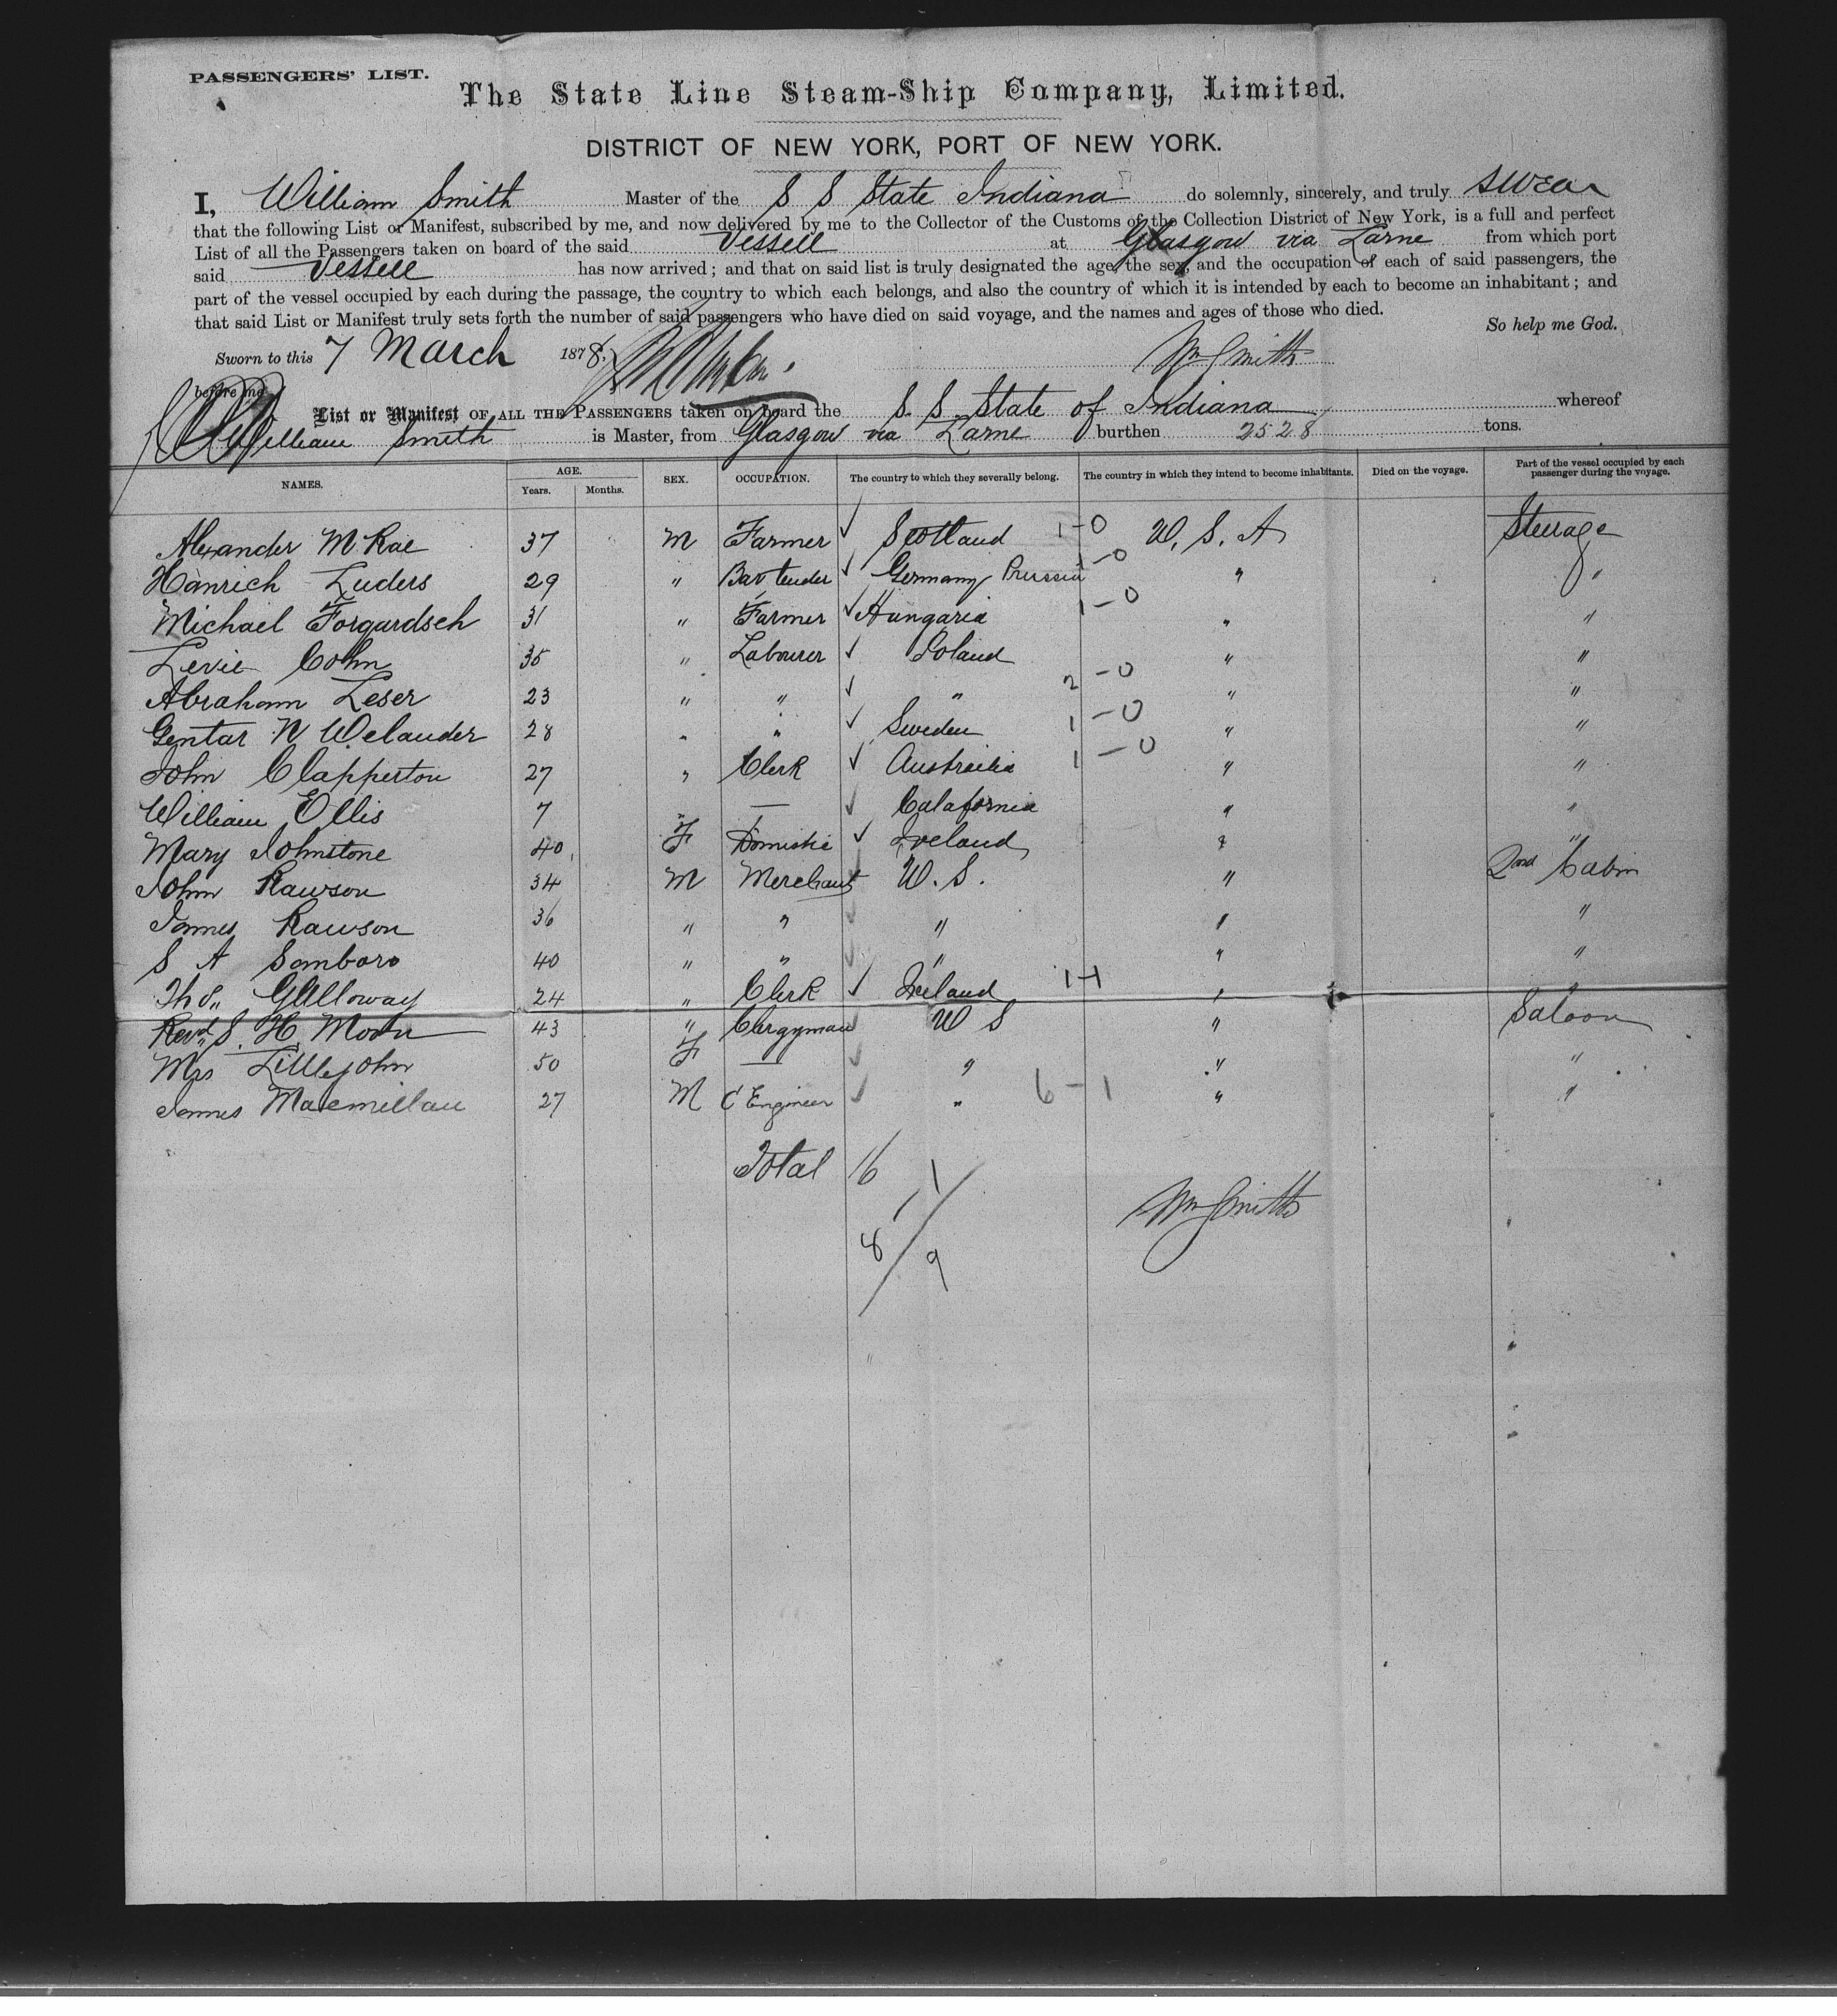 PASSENGERS' LIST.
The State Line Steam-Ship Company, Limited.
DISTRICT OF NEW YORK, PORT OF NEW YORK.
I, William Smith Master of the S S State Indiana do solemnly, sincerely, and truly swear
that the following List or Manifest, subscribed by me, and now delivered by me to the Collector of the Customs of the Collection District of New York, is a full and perfect
List of all the Passengers taken on board of the said Vessell at Glasgow via Larne from which port
said Vessell has now arrived; and that on said list is truly designated the age, the sex, and the occupation of each of said passengers, the
part of the vessel occupied by each during the passage, the country to which each belongs, and also the country of which it is intended by each to become an inhabitant; and
that said List or Manifest truly sets forth the number of said passengers who have died on said voyage, and the names and ages of those who died.
So help me God.
Sworn to this 7 March 1878. Wm Smith
before me
List or Manifest OF ALL THE PASSENGERS taken on board the S. S. State of Indiana whereof
William Smith is Master, from Glasgow via Larne burthen 2528 tons.
NAMES. AGE. Years. Months. SEX. OCCUPATION. The country to which they severally belong. The country in which they intend to become inhabitants. Died on the voyage. Part of the vessel occupied by each passenger during the voyage.
Alexander McRae 37 M Farmer ✓ Scotland 1-0 U. S. A Steerage
Hanrich Luders 29 " Bar tender ✓ Germany Prussia 1-0 " "
Michael Forgardsch 31 " Farmer ✓ Hungaria 1-0 " "
Levie Cohn 35 " Labourer ✓ Poland " "
Abraham Leser 23 " " ✓ " 2-0 " "
Gentar N Welander 28 " " ✓ Sweden 1-0 " "
John Clapperton 27 " Clerk ✓ Austrailia 1-0 " "
William Ellis 7 " — ✓ Calafornia " "
Mary Johnstone 40 F Domistic ✓ Ireland " "
John Rawson 34 M Merchant ✓ U. S. " 2nd Cabin
James Rawson 36 " " ✓ " " "
S A Samboro 40 " " ✓ " " "
Thos. Galloway 24 " Clerk ✓ Ireland 1-1 "
Revd. S. H. Moon 43 " Clergyman ✓ U S " Saloon
Mrs Littlejohn 50 F — ✓ " " "
James Macmillan 27 M C Engineer ✓ " 6-1 " "
Total 16
8/9
Wm Smith